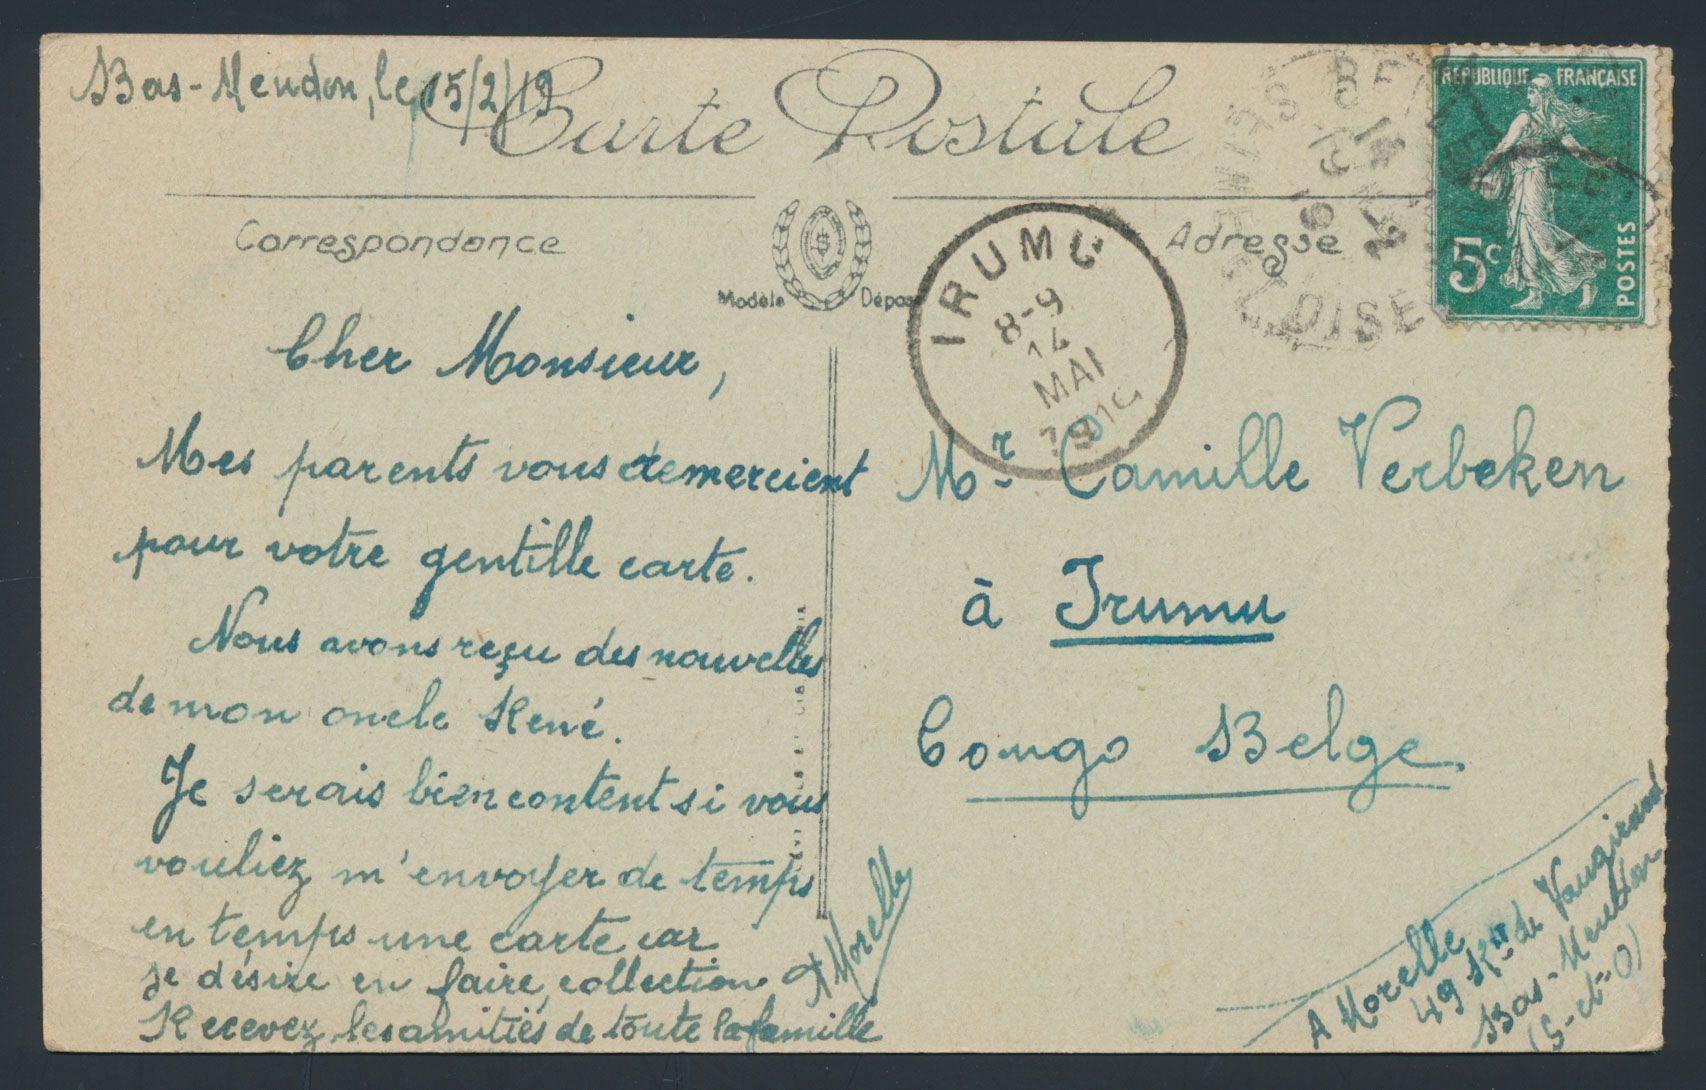 Bas-Meudon, le 15/2/19
Carte Postale
RÉPUBLIQUE FRANÇAISE
5c
POSTES
OISE
Correspondance
Adresse
Modèle Déposé
IRUMU
8-9
14
MAI
Cher Monsieur,
Mes parents vous remercient
pour votre gentille carte.
Nous avons reçu des nouvelles
de mon oncle René.
Je serais bien content si vous
vouliez m'envoyer de temps
en temps une carte car
je désire en faire collection
Recevez les amitiés de toute la famille
A Morelle
Mr Camille Verbeken
à Irumu
Congo Belge
A Morelle
49 Rte de Vaugirard
Bas-Meudon
(S-et-O)